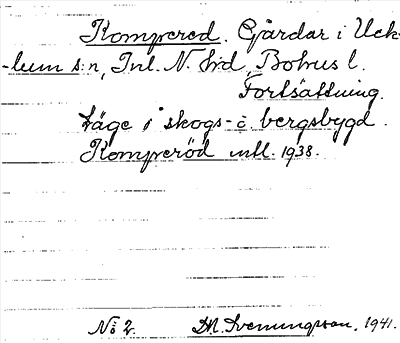 Kompered. Gårdar i Uck-
-lum s:n, Inl. N. hrd, Bohus l.
Fortsättning.
Läge i skogs- o. bergsbygd.
Komperöd utt. 1938.
No 2. D.A. Svenungsson, 1941.